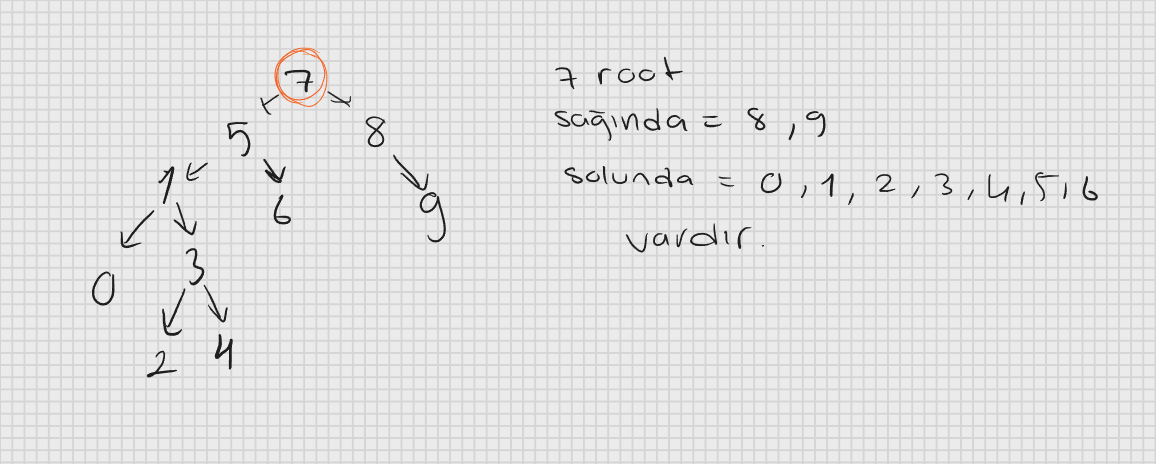 7
5 8
1 6 9
0 3
2 4
7 root
sağında = 8, 9
solunda = 0, 1, 2, 3, 4, 5, 6
vardır.